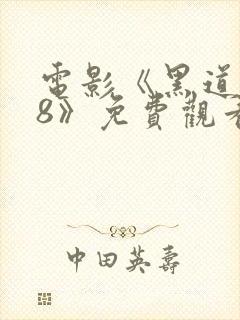 電影《黑道
8》免費觀看
中田英壽